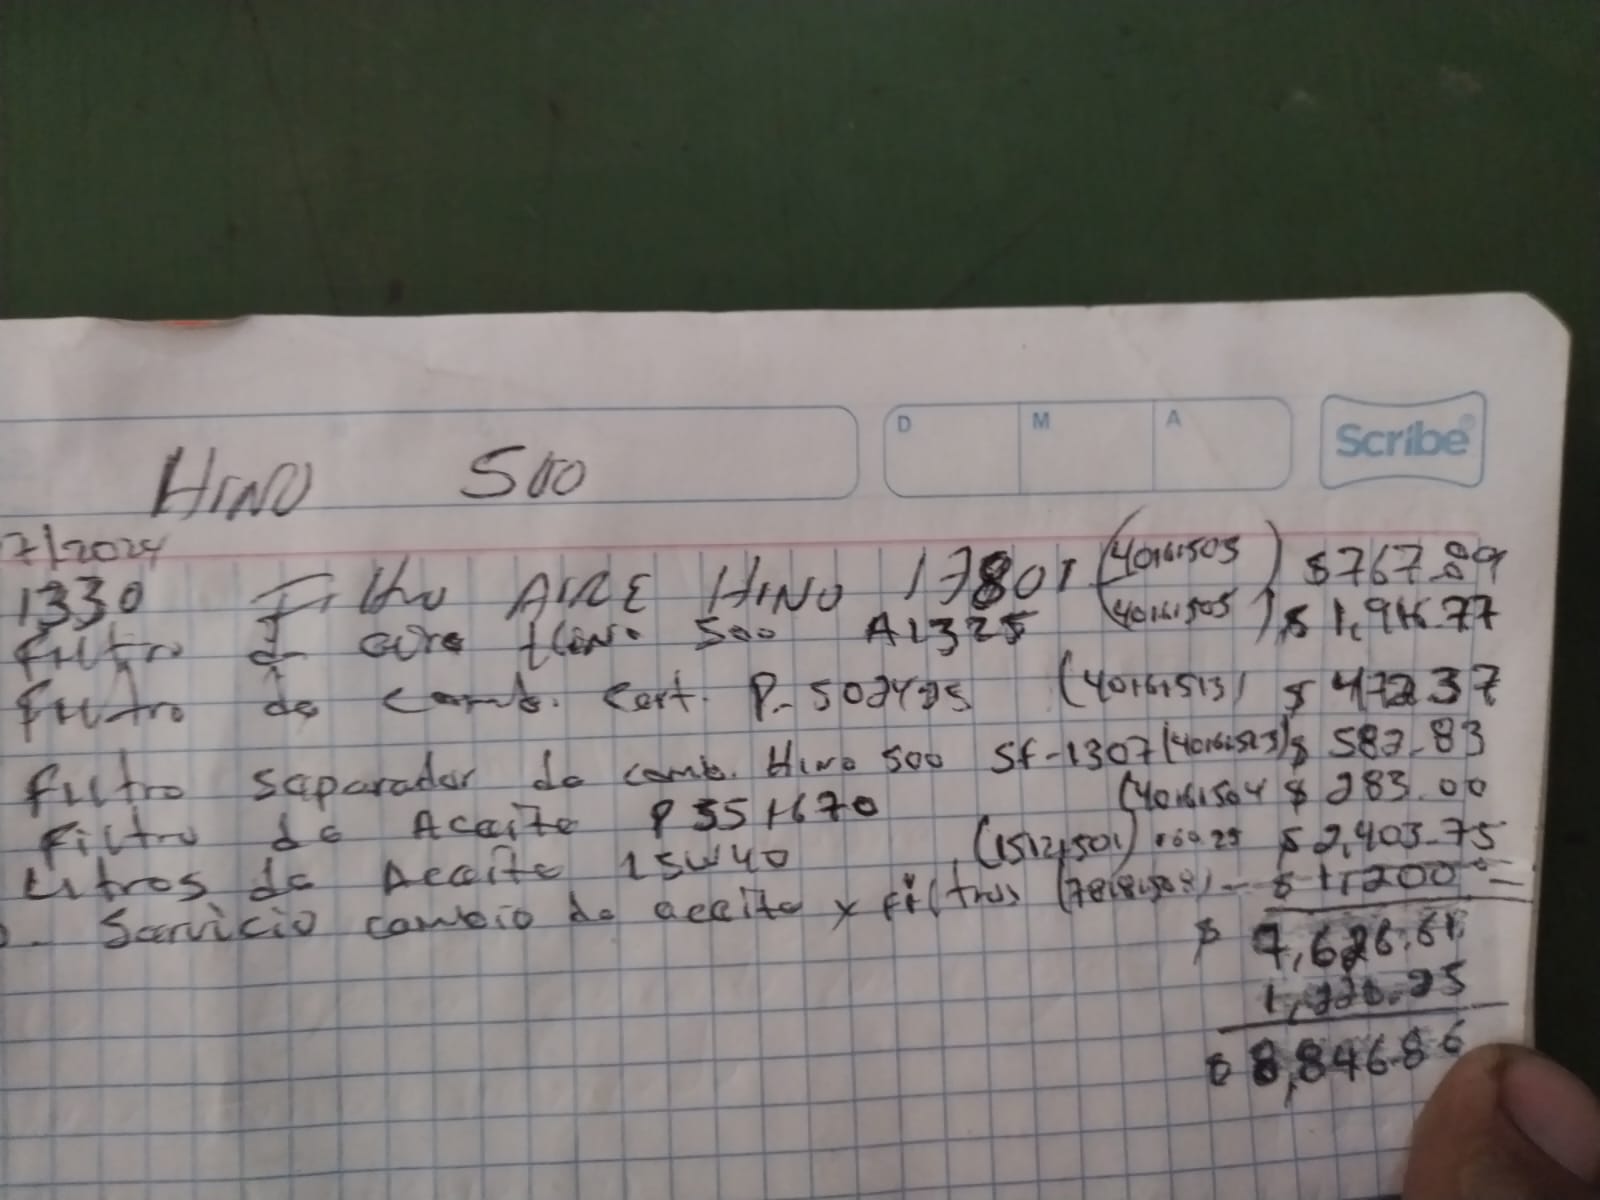 D M A Scribe
HINO 500
7/2024
1330 Filtro AIRE HINO 17801 (40161505) $767.89
Filtro d aire Hino 500 A1325 (40161505) $1,916.77
Filtro de comb. Cart. P-502425 (40161513) $472.37
Filtro separador de comb. Hino 500 SF-1307 (40161513) $582.83
Filtro de Aceite P551670 (40161504 $283.00
Litros de Aceite 15W40 (15121501) 160.25 $2,403.75
. Servicio cambio de aceite y filtros $1,200
$7,626.61
1,220.25
$8,846.86